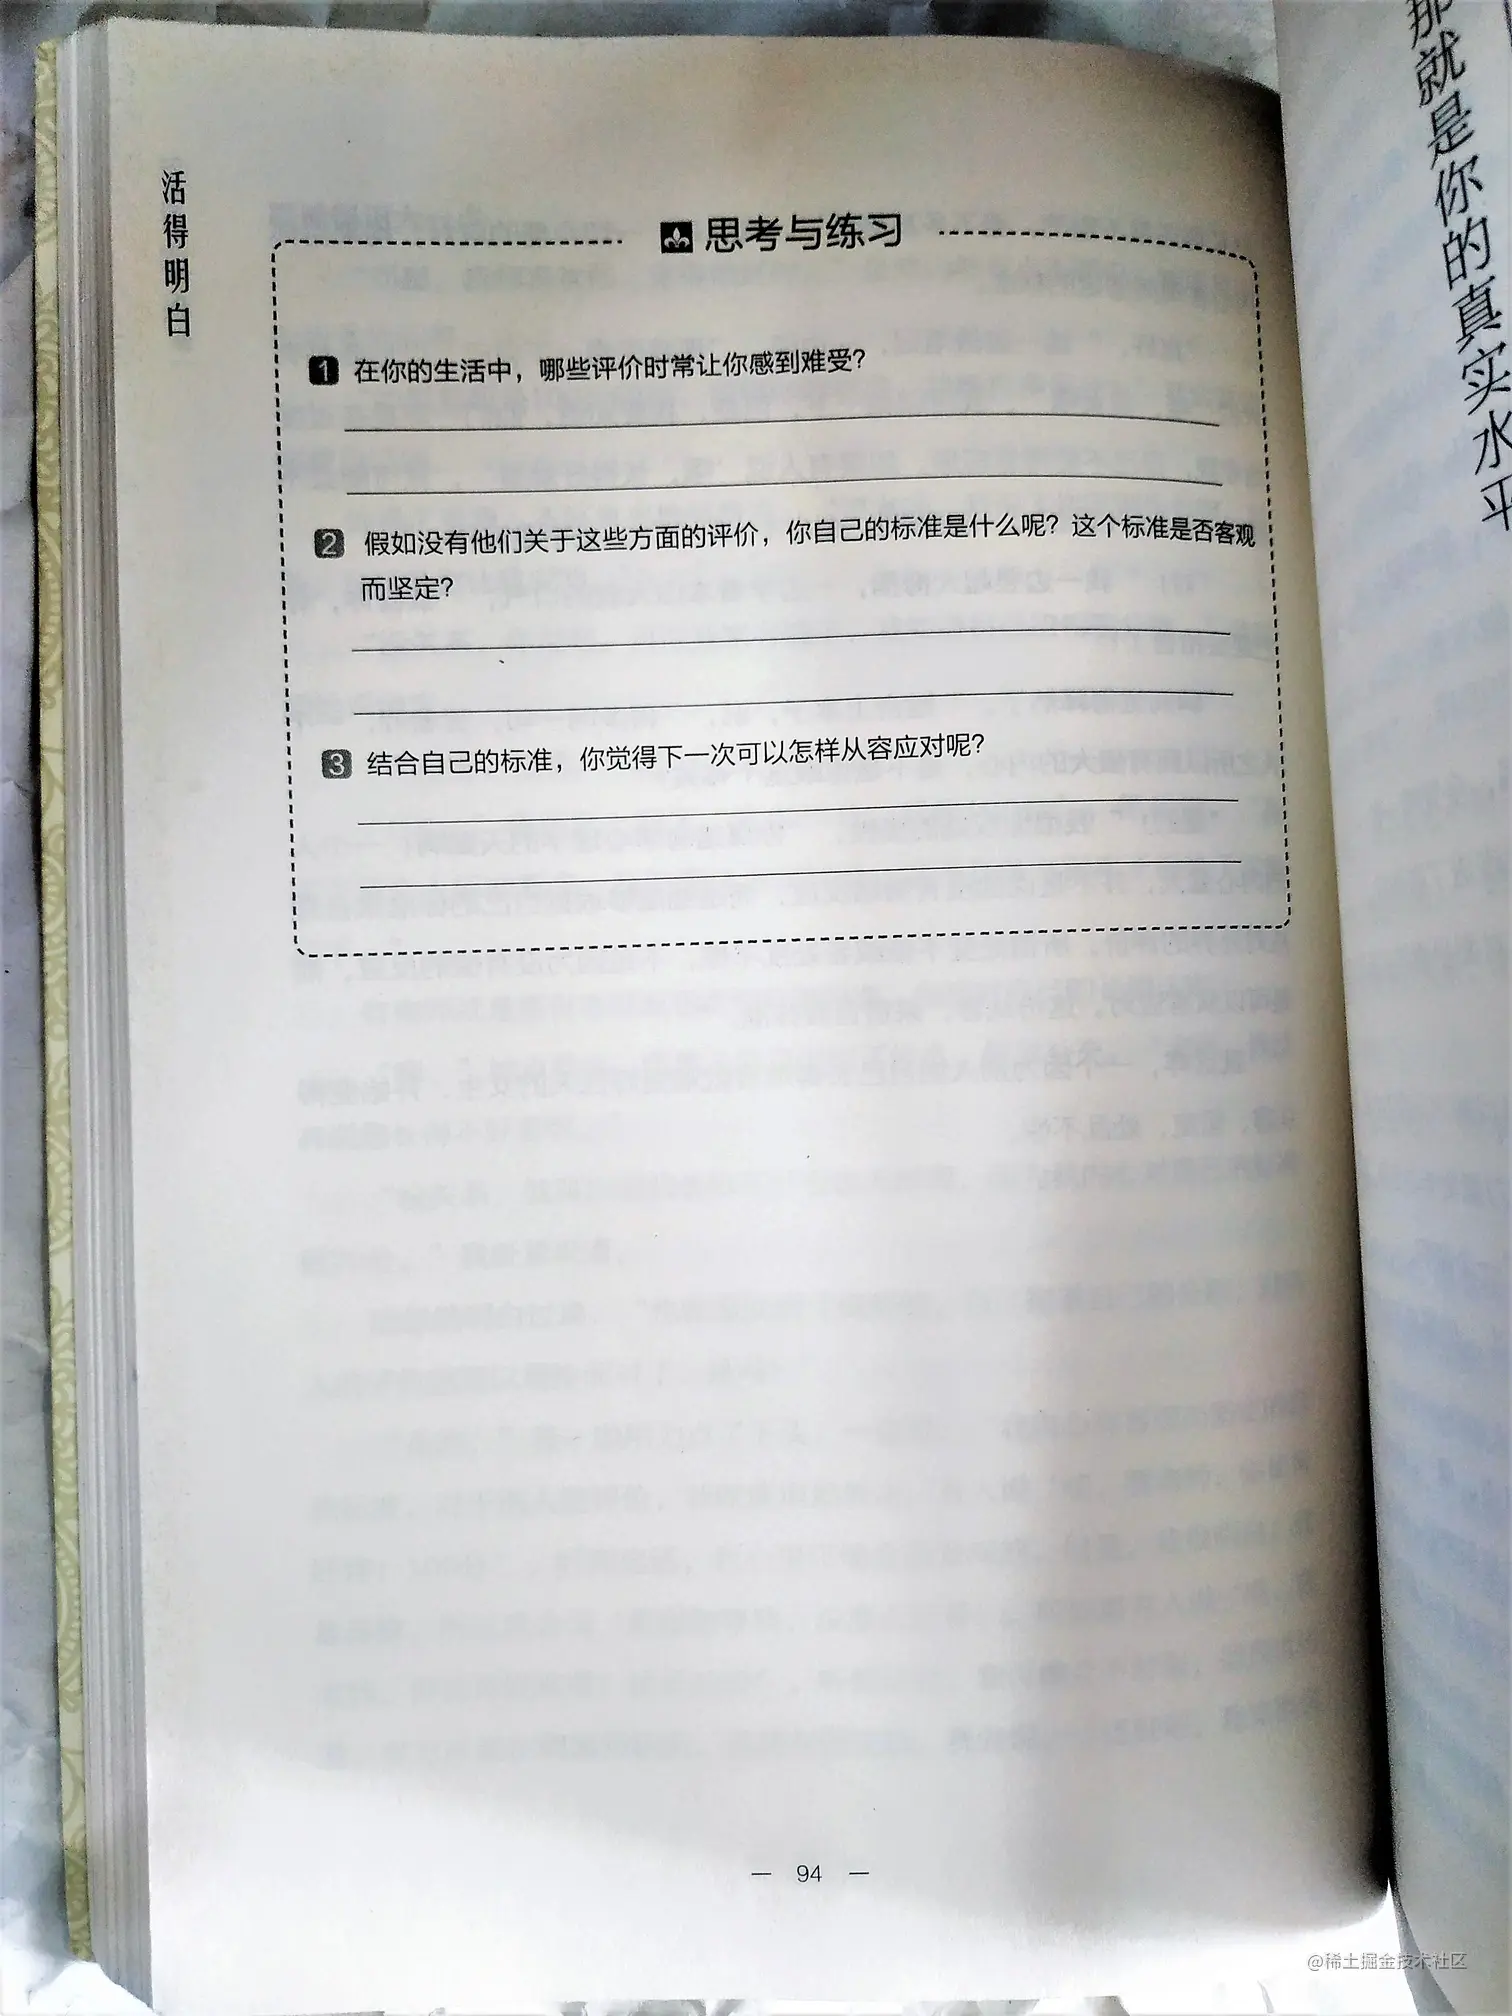 活得明白
思考与练习
1 在你的生活中，哪些评价时常让你感到难受？
2 假如没有他们关于这些方面的评价，你自己的标准是什么呢？这个标准是否客观
而坚定？
3 结合自己的标准，你觉得下一次可以怎样从容应对呢？
— 94 —
那就是你的真实水平
@稀土掘金技术社区